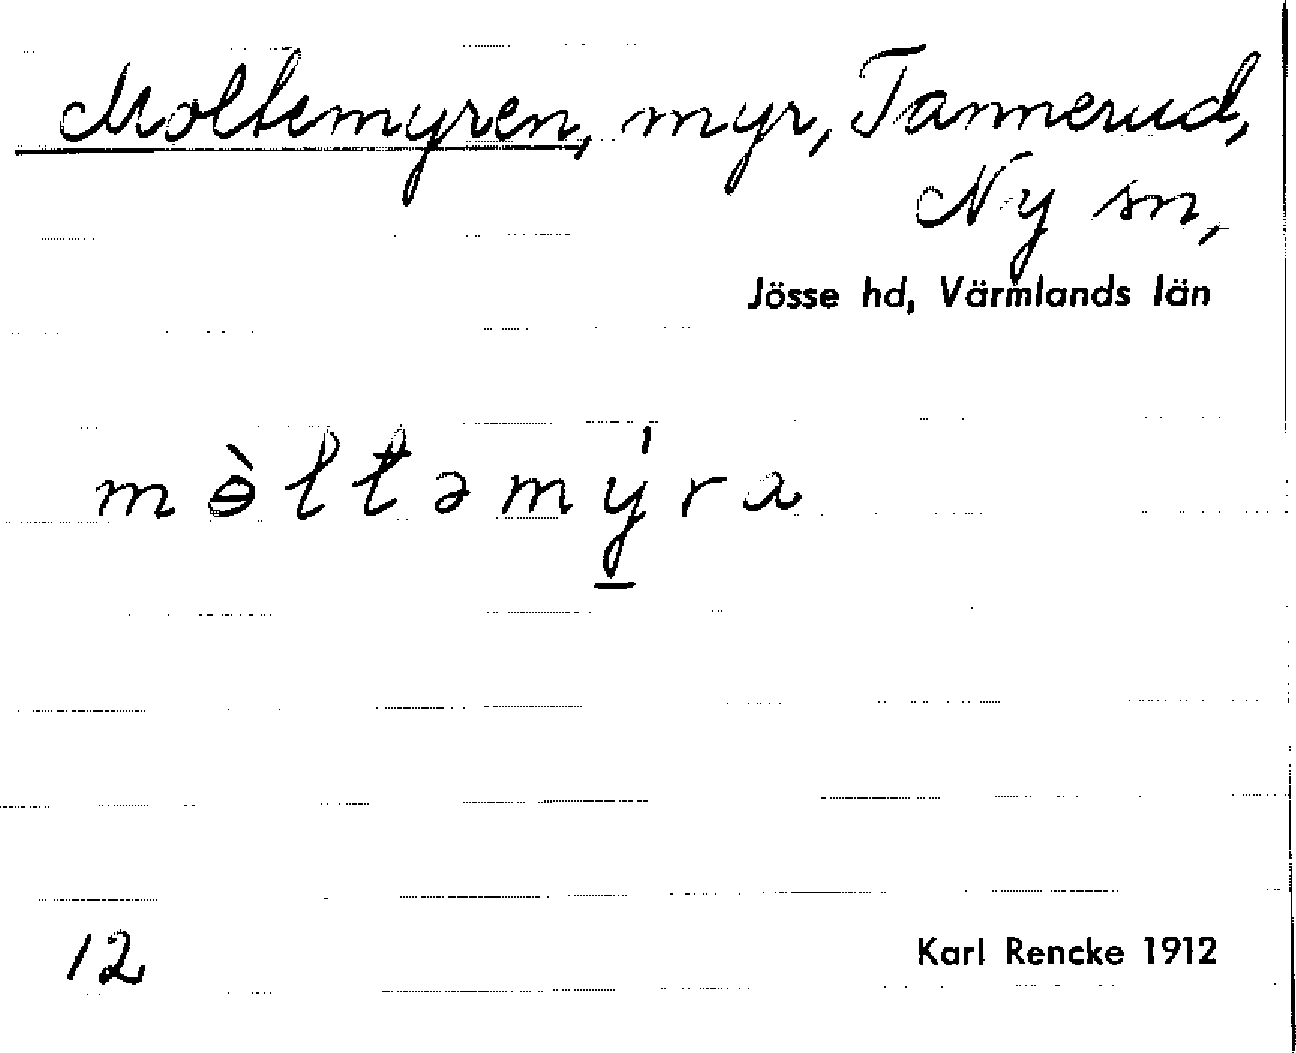 Moltemyren, myr, Tannerud,
Ny sn,
Jösse hd, Värmlands län
mɵ̀ltəmýra
12
Karl Rencke 1912